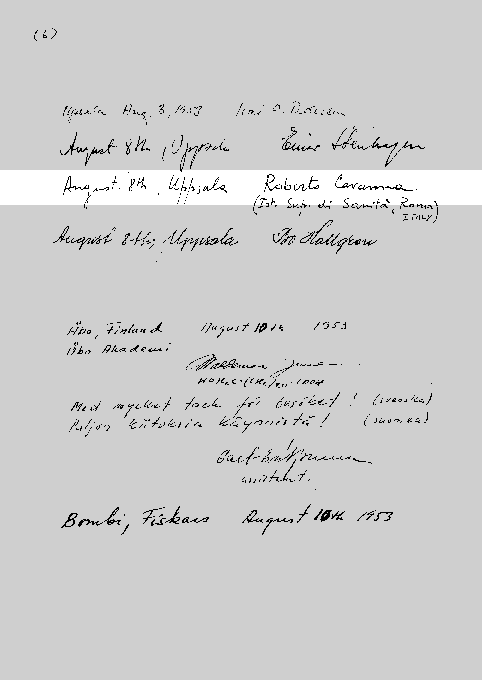 (6)
Uppsala Aug. 3, 1953 Kai O. Pedersen
August 8th, Uppsala Einar Stenhagen
August 8th, Uppsala Roberto Cavanna
(Ist. Sup. di Sanità, Roma)
ITALY
August 8-th, Uppsala Bo Hallgren
Åbo, Finland August 10th 1953
Åbo Akademi
Waldemar
Med mycket tack för besöket! (svenska)
Paljon kiitoksia käynnistä! (suomea)
Carl-Erik
assistent.
Bombi, Fiskars August 10th 1953